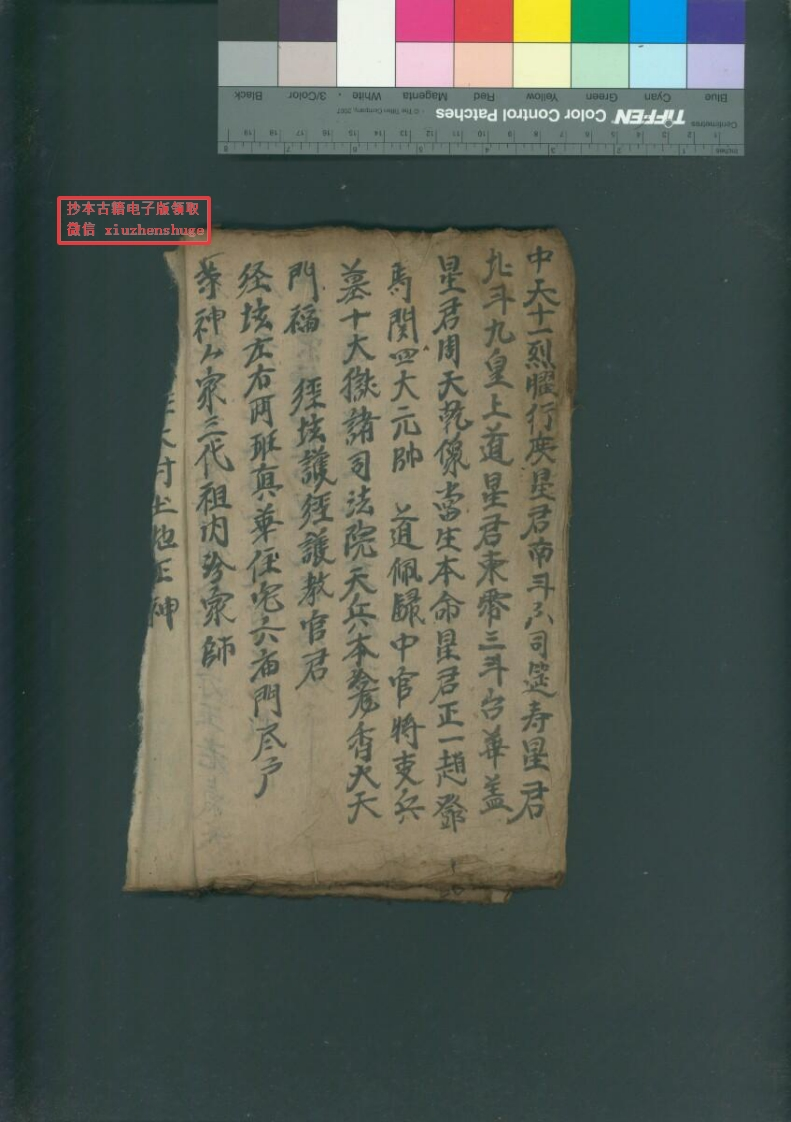 中天十一烈曜行度星君南斗六司延寿星君
北斗九皇上道星君東零三斗台華盖
星君周天乾像當生本命星君正一趙鄧
馬関四大元帅 道佩籙中官将吏兵
墓十大獄諸司法院天兵本爺香火天
門福 經坛護經護教官君
经坛左右两班真華住宅六亩門尽户
等神公家三代祖内於家師
土地正神
抄本古籍电子版领取
微信 xiuzhenshuge
TIFFEN Color Control Patches
© The Tiffen Company, 2007
Centimetres
Inches
Blue Cyan Green Yellow Red Magenta White 3/Color Black